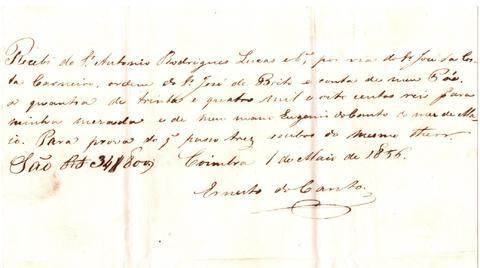 Recebi do Sr. Antonio Rodrigues Lucas & Cª, por via do Sr. José da Cos-
ta Carneiro, ordem do Sr. José de Brito e conta de meu Pae
a quantia de trinta e quatro mil e oito centos reis para
minha mezada e de meu mano Eugenio do Canto do mez de Ma-
io. Para prova do q. passo trez escritos do mesmo theor.
São Rs 34$800 Coimbra 1 de Maio de 1856.
Ernesto do Canto